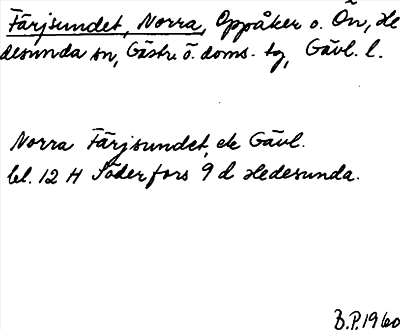 Färjsundet, Norra, Oppåker o. Ön, He
desunda sn, Gästr. ö. doms. tg, Gävl. l.
Norra Färjsundet, ek Gävl.
bl. 12 H Söderfors 9 d Hedesunda.
B.P. 1960